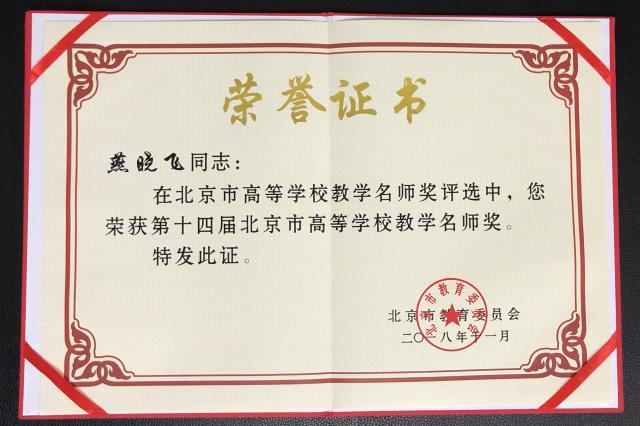 荣誉证书
燕晓飞同志：
在北京市高等学校教学名师奖评选中，您
荣获第十四届北京市高等学校教学名师奖。
特发此证。
北京市教育委员会
二〇一八年十一月
北京市教育委员会